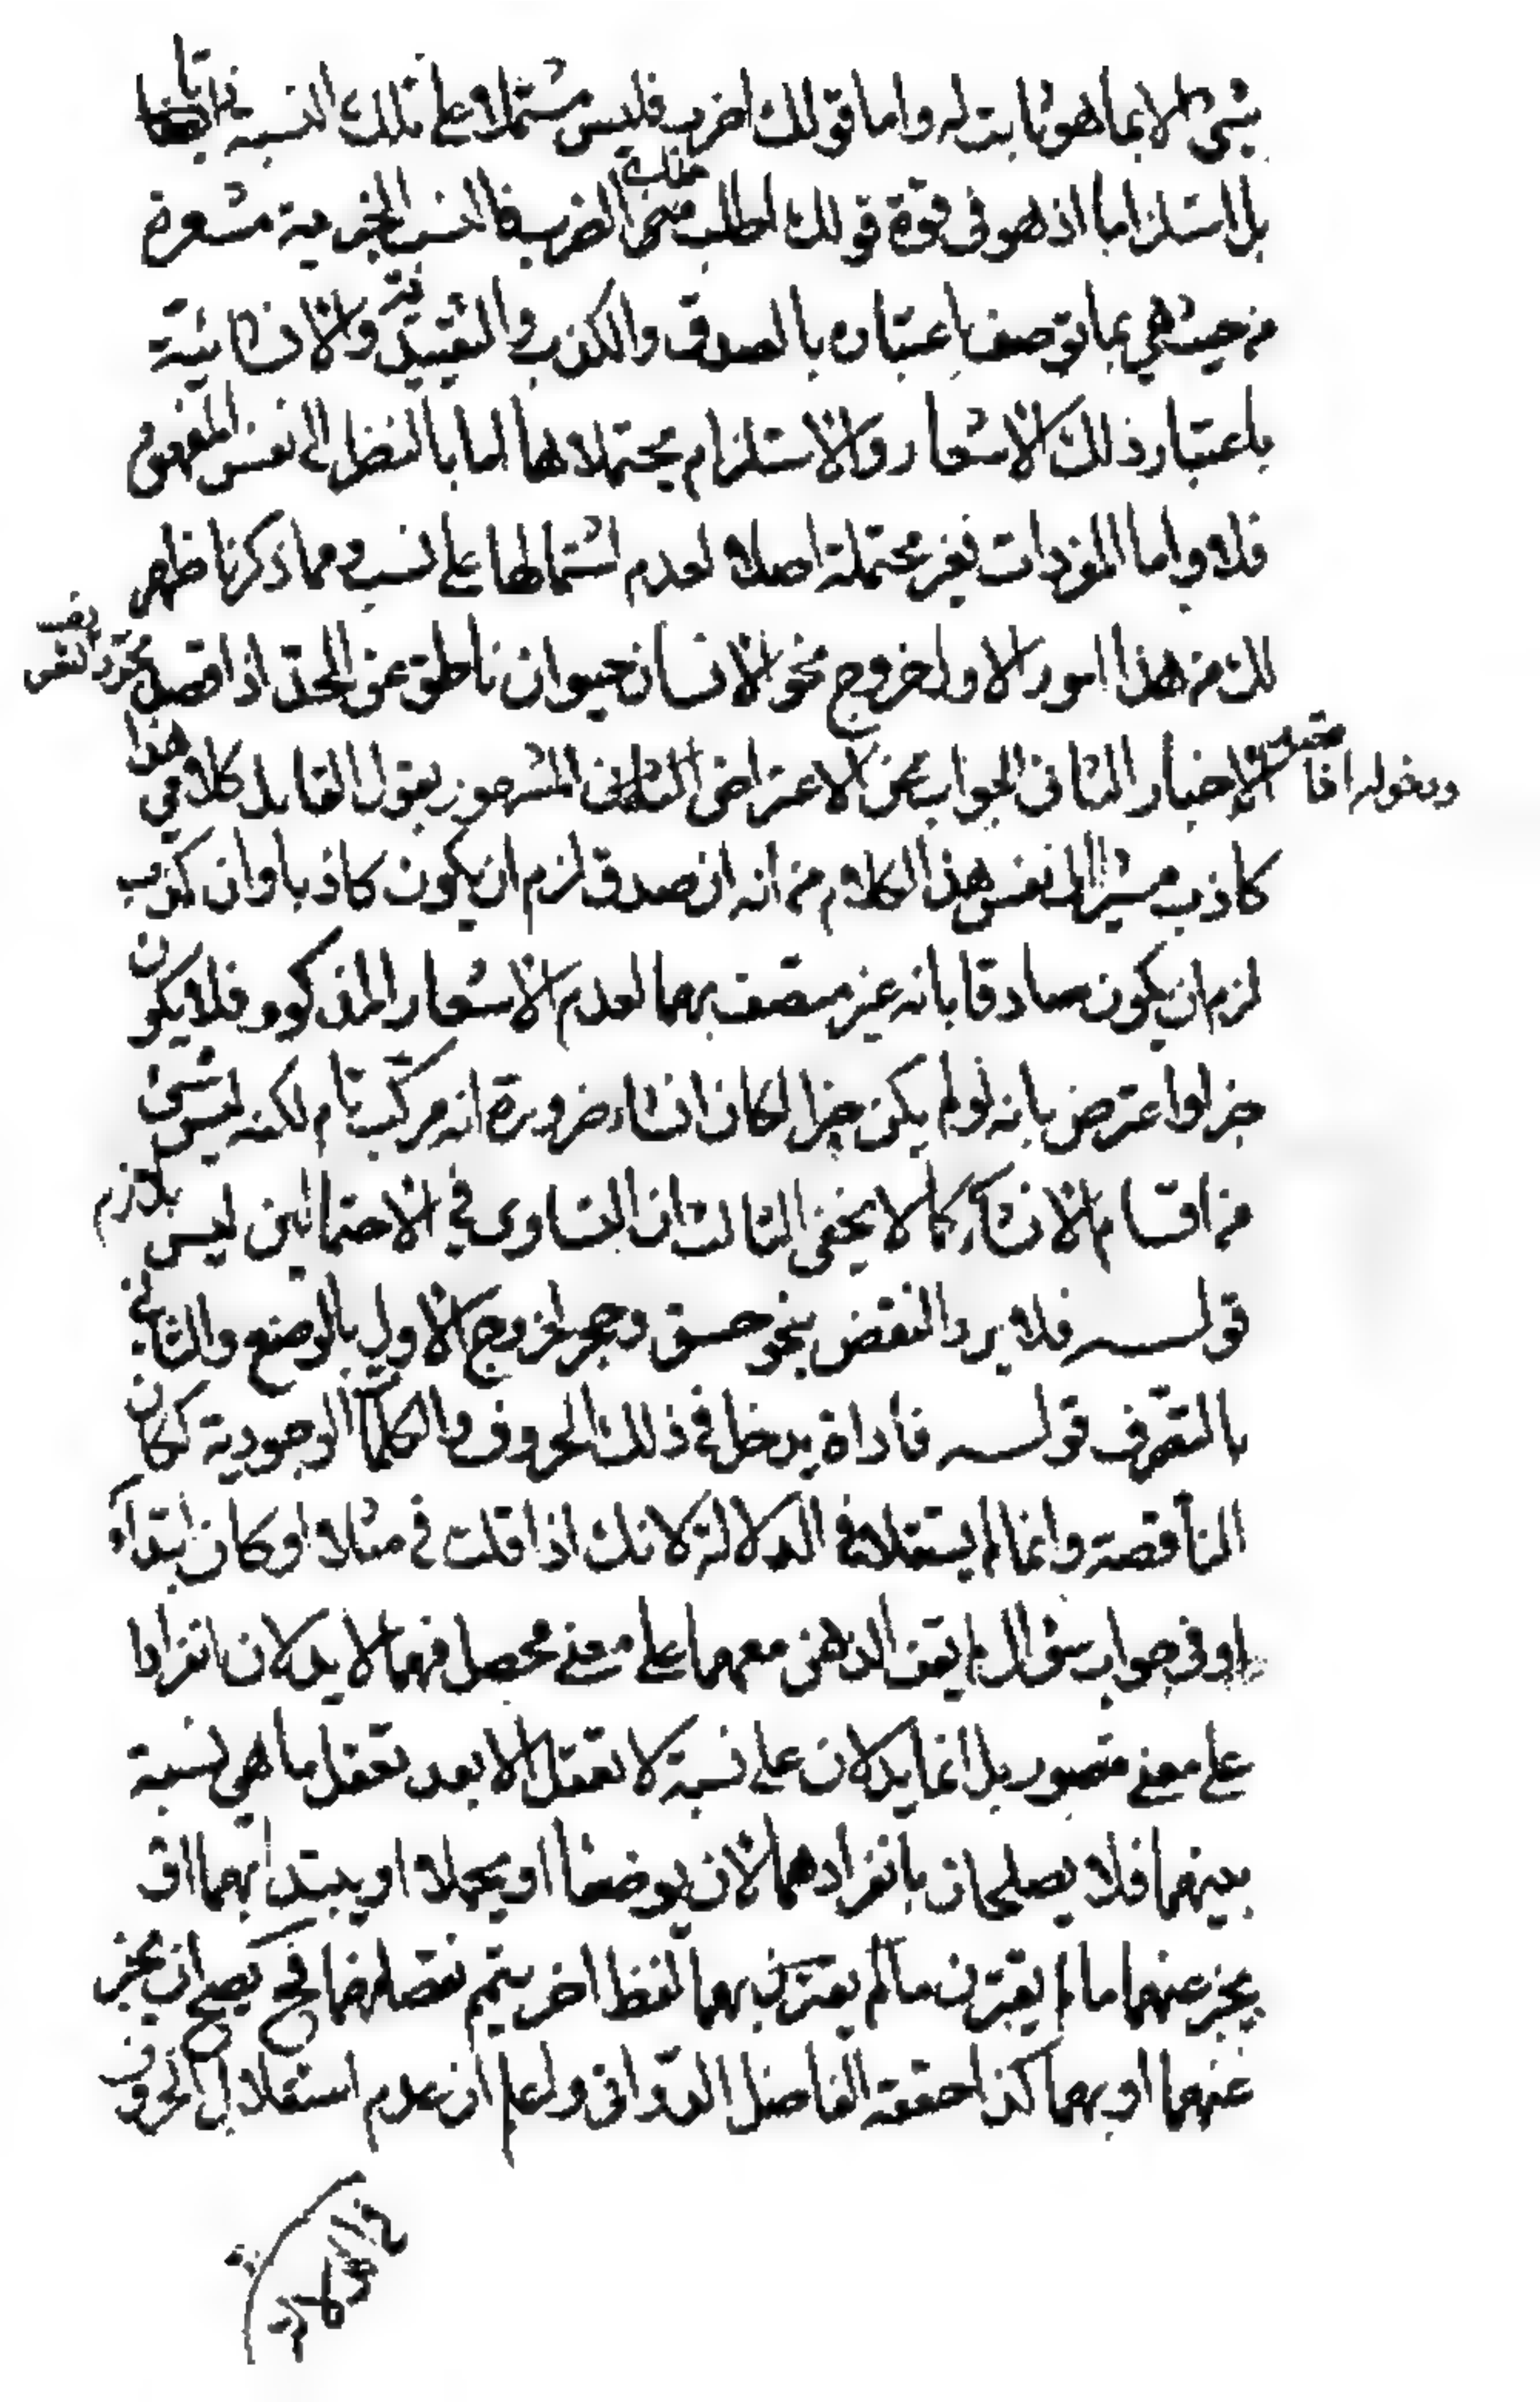 بشئ الا بما هو ثابت له واما قولك اضرب فليس مشتملا على تلك النسبة ذاتيا
بل استلزاما اذ هو فى قوة قولك اطلب منك الضرب فالنسب الخبرية مشعرة
من حيث هي بما توصف باعتباره بالصدق والكذب والتقييدية والانشائية
باعتبار ذلك الاشعار والاستلزام يحتملاهما اما بالنظر الى نفس المفهوم
فلا واما المفردات فغير محتملة اصلا لعدم اشتمالها على نسب ومما ذكرنا ظهر
لك من هذا امور الاول خروج نحو الانسان حيوان ناطق عن الحد اذا قصد به مجرد التفسير
ودخوله اذا قصد الاخبار الثانى الجواب عن الاعتراض المشهور بقول القايل كلامي هذا
كاذب مشيرا الى نفس هذا الكلام من انه ان صدق لزم ان يكون كاذبا وان كذب
لزم ان يكون صادقا بانه غير متصف بهما لعدم الاشعار المذكور فلا يكون
خبرا واعترض بانه لو لم يكن خبرا لكان انشاء ضرورة انه مركب تام لكنه ليس بشئ
من اقسام الانشاء كما لا يخفى الثالث ان التساوى في الاحتمالين ليس بلازم
قوله فلا يرد النقض بنحو حسق وجر لخروج الاول بالوضع والثاني
بالتعرف قوله فاداة يدخل في ذلك الحروف والكلمات الوجودية ككان
الناقصة وانما لم يستقلا في الدلالة لانك اذا قلت في مثلا او كان ابتداء
او فى جواب سؤال لم يقف الذهن معهما على معنى محصل فهما لا يدلان انفرادا
على معنى متصور بل انما يدلان على نسبة لا تعقل الا بعد تعقل ما هي نسبة
بينهما فلا يصلحان بانفرادهما لان يوضعا او يحملا او يبتدا بهما او
يخبر عنهما ما لم يقترن ما لم يقترن بهما لفظ اخر يتمم نقصانهما فح يصح ان يخبر
عنهما او بهما كذا حققه الفاضل الدوانى واعلم ان عدم استقلال الحروف